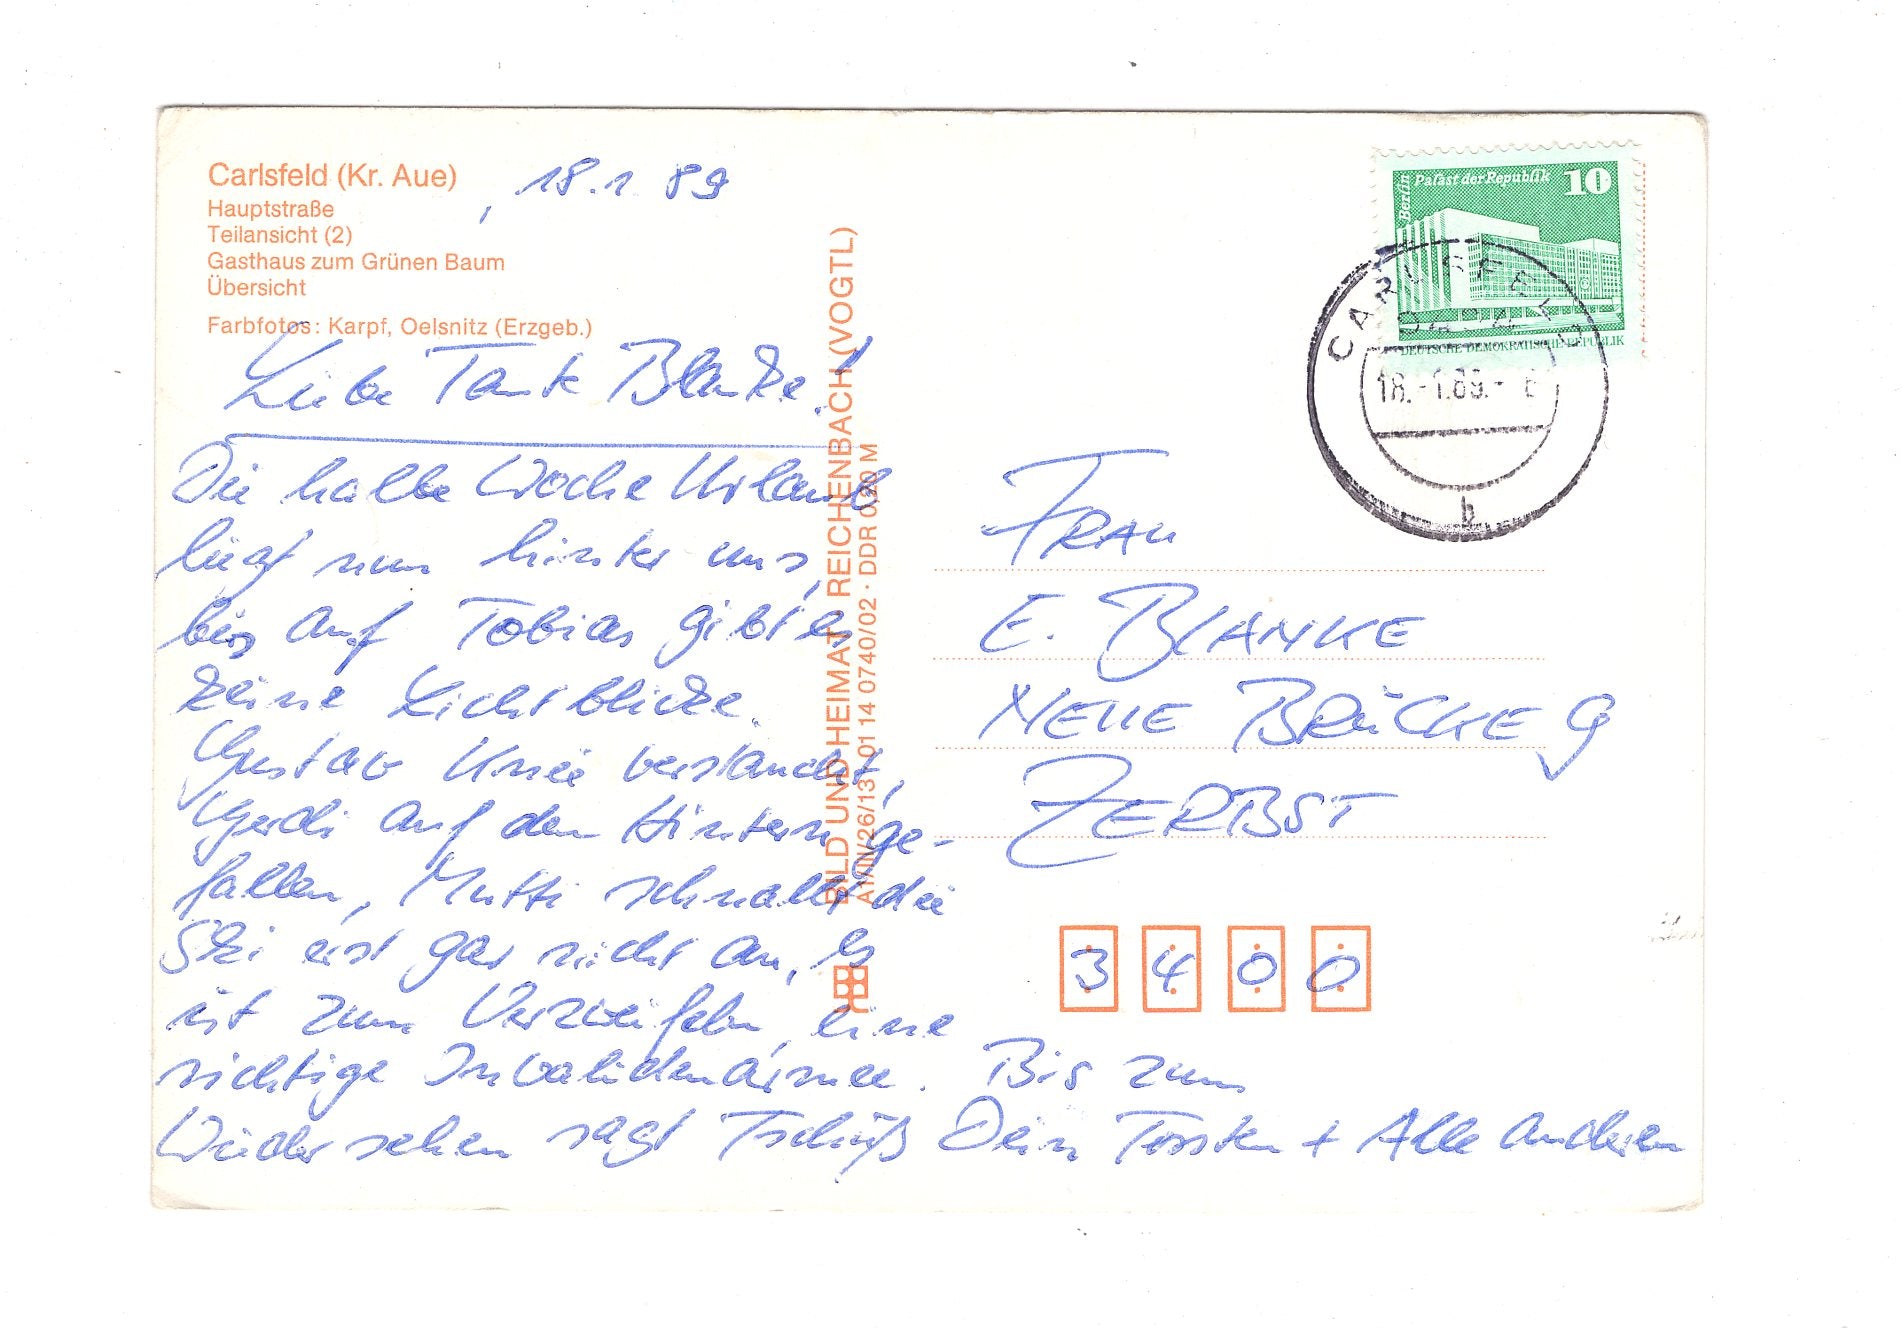 Carlsfeld (Kr. Aue)
, 18.1.89
Hauptstraße
Teilansicht (2)
Gasthaus zum Grünen Baum
Übersicht
Farbfotos: Karpf, Oelsnitz (Erzgeb.)
Liebe Tante Blanke!
Die halbe Woche Urlaub
liegt nun hinter uns,
bis auf Tobias gibt es
keine Lichtblicke.
Gustav Knie verstaucht,
Gerdi auf den Hintern ge-
fallen, Mutti schnallt die
Ski erst gar nicht an, Es
ist zum Verzweifeln, eine
richtige Invalidenarmee. Bis zum
Wiedersehen sagt Tschüß Dein Torsten + Alle anderen
BILD UND HEIMAT REICHENBACH (VOGTL)
A1/III/26/13 01 14 0740/02 · DDR 0,20 M
Berlin
Palast der Republik 10
DEUTSCHE DEMOKRATISCHE REPUBLIK
CARLSFELD
18.-1.89.-
b
FRAU
E. BLANKE
NEUE BRÜCKE 9
ZERBST
3400